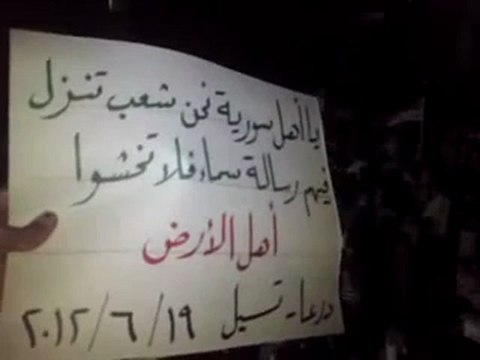 يا أهل سورية نحن شعب تنزل
فيهم رسالة سماء فلا تخشوا
أهل الأرض
درعا - تسيل ١٩ / ٦ / ٢٠١٢